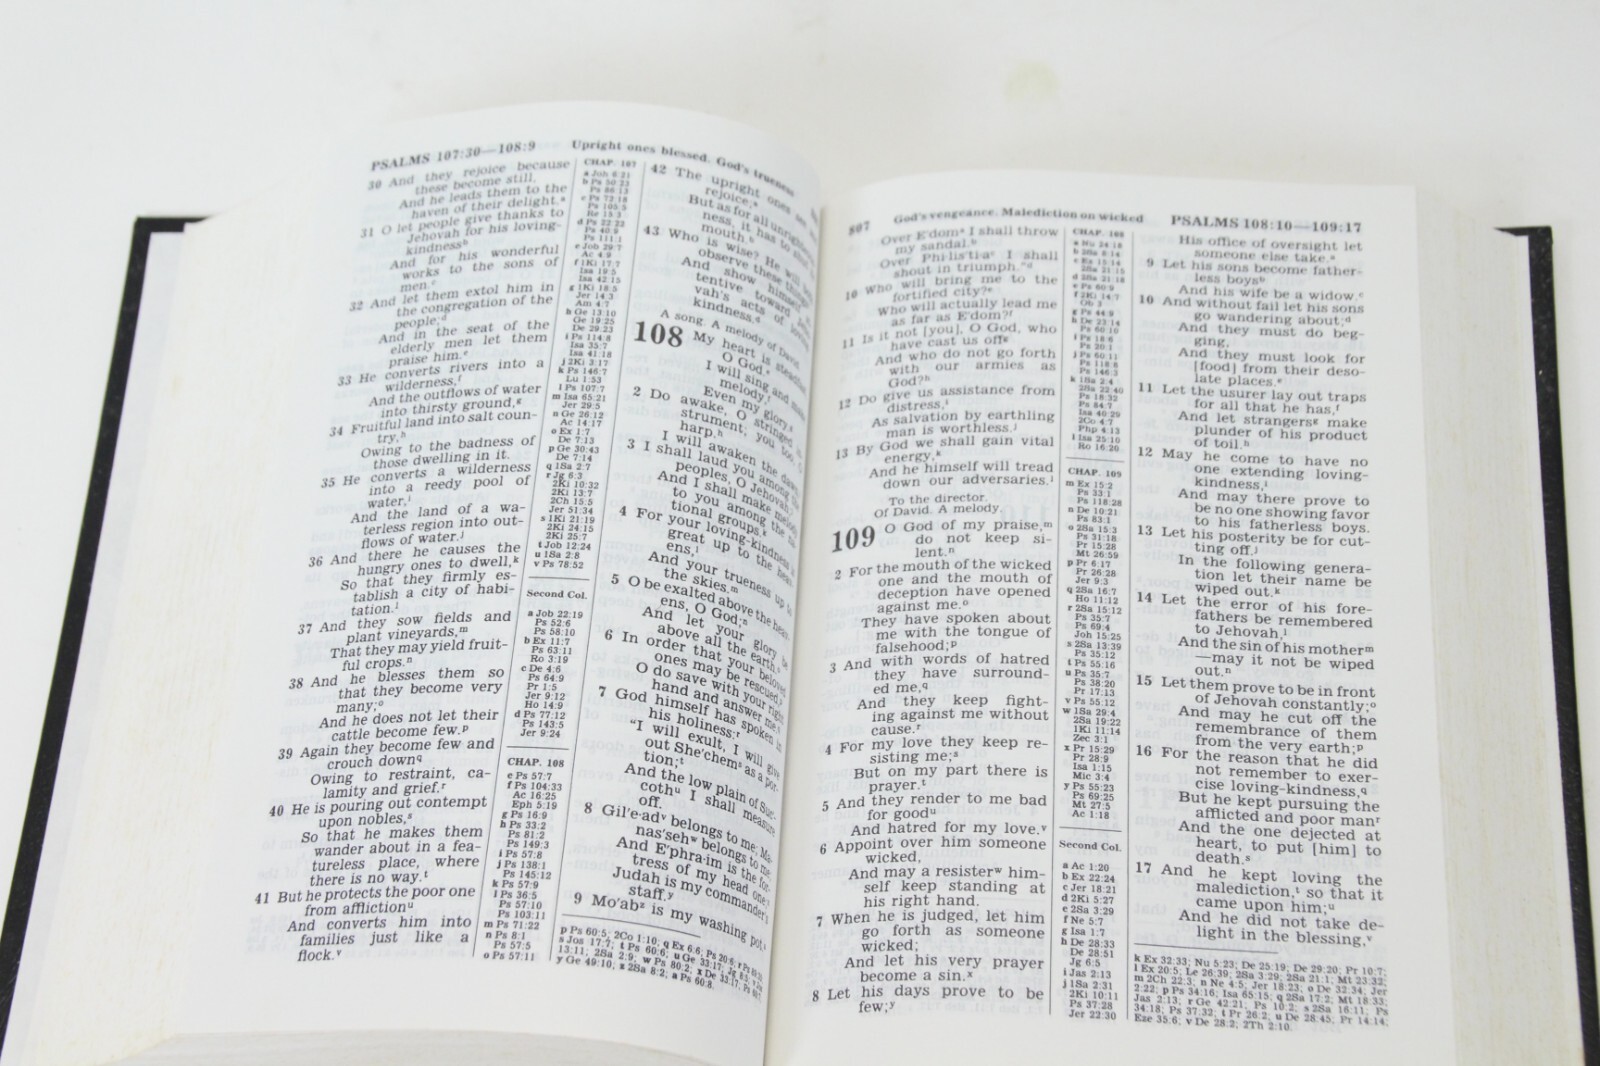 PSALMS 107:30—108:9
Upright ones blessed. God's trueness
30 And they rejoice because
these become still,
And he leads them to the
haven of their delight.ᵃ
31 O let people give thanks to
Jehovah for his loving-
kindnessᵇ
And for his wonderful
works to the sons of
men.ᶜ
32 And let them extol him in
the congregation of the
people;ᵈ
And in the seat of the
elderly men let them
praise him.ᵉ
33 He converts rivers into a
wilderness,ᶠ
And the outflows of water
into thirsty ground,ᵍ
34 Fruitful land into salt coun-
try,ʰ
Owing to the badness of
those dwelling in it.
35 He converts a wilderness
into a reedy pool of
water,ⁱ
And the land of a wa-
terless region into out-
flows of water.ʲ
36 And there he causes the
hungry ones to dwell,ᵏ
So that they firmly es-
tablish a city of habi-
tation.ˡ
37 And they sow fields and
plant vineyards,ᵐ
That they may yield fruit-
ful crops.ⁿ
38 And he blesses them so
that they become very
many;ᵒ
And he does not let their
cattle become few.ᵖ
39 Again they become few and
crouch down𐞥
Owing to restraint, ca-
lamity and grief.ʳ
40 He is pouring out contempt
upon nobles,ˢ
So that he makes them
wander about in a fea-
tureless place, where
there is no way.ᵗ
41 But he protects the poor one
from afflictionᵘ
And converts him into
families just like a
flock.ᵛ
CHAP. 107
a Job 6:21
b Ps 50:23
Ps 86:13
c Ps 72:18
Ps 105:5
Re 15:3
d Ps 22:22
Ps 40:9
Ps 111:1
e Job 29:7
Ac 4:9
f 1Ki 17:7
Isa 19:5
Isa 42:15
g 1Ki 18:5
Jer 14:3
Am 4:7
h Ge 13:10
Ge 19:25
De 29:23
i Ps 114:8
Isa 35:7
Isa 41:18
j 2Ki 3:17
k Ps 146:7
Lu 1:53
l Ps 107:7
m Isa 65:21
Jer 29:5
n Ge 26:12
Ac 14:17
o Ex 1:7
De 7:13
p Ge 30:43
De 7:14
q 1Sa 2:7
r Jg 6:3
2Ki 10:32
2Ki 13:7
2Ch 15:5
Jer 51:34
s 1Ki 21:19
2Ki 24:15
2Ki 25:7
t Job 12:24
u 1Sa 2:8
v Ps 78:52
Second Col.
a Job 22:19
Ps 52:6
Ps 58:10
b Ex 11:7
Ps 63:11
Ro 3:19
c De 4:6
Ps 64:9
Pr 1:5
Jer 9:12
Ho 14:9
d Ps 77:12
Ps 143:5
Jer 9:24
CHAP. 108
e Ps 57:7
f Ps 104:33
Ac 16:25
Eph 5:19
g Ps 16:9
h Ps 33:2
Ps 81:2
Ps 149:3
i Ps 57:8
j Ps 138:1
Ps 145:12
k Ps 57:9
l Ps 36:5
Ps 57:10
Ps 103:11
m Ps 71:22
n Ps 8:1
Ps 57:5
o Ps 57:11
42 The upright ones see
rejoice;ᵃ
But as for all unrighteous-
ness, it has to shut
mouth.ᵇ
43 Who is wise? He will both
observe these things
And show himself at-
tentive toward Jeho-
vah's acts of loving-
kindness.ᵈ
A song. A melody of David.
108 My heart is steadfast
O God.ᵉ
I will sing and make
melody,ᶠ
Even my glory.ᵍ
2 Do awake, O stringed in-
strument; you too, O
harp.ʰ
I will awaken the dawn.
3 I shall laud you among the
peoples, O Jehovah;
And I shall make melody
to you among the na-
tional groups.ᵏ
4 For your loving-kindness is
great up to the heav-
ens,ˡ
And your trueness up to
the skies.ᵐ
5 O be exalted above the heav-
ens, O God;ⁿ
And let your glory be
above all the earth.ᵒ
6 In order that your beloved
ones may be rescued,ᵖ
O do save with your right
hand and answer me.𐞥
7 God himself has spoken in
his holiness:ʳ
"I will exult, I will give
out She'chemˢ as a por-
tion;ᵗ
And the low plain of Suc-
cothᵘ I shall measure
off.
8 Gil'e·adᵛ belongs to me; Ma-
nas'sehʷ belongs to me,
And E'phra·im is the for-
tress of my head one;ˣ
Judah is my commander's
staff.ʸ
9 Mo'abᶻ is my washing pot.
p Ps 60:5; 2Co 1:10; q Ex 6:6; Ps 20:6;
s Jos 17:7; t Ps 60:6; u Ge 33:17; Jg 8:5;
13:11; 2Sa 2:9; w Ps 80:2; x De 33:17;
y Ge 49:10; z 2Sa 8:2; a Ps 60:8.
807
God's vengeance. Malediction on wicked
PSALMS 108:10—109:17
Over E'domᵃ I shall throw
my sandal.ᵇ
Over Phi·lis'ti·aᶜ I shall
shout in triumph."ᵈ
10 Who will bring me to the
fortified city?ᵉ
Who will actually lead me
as far as E'dom?ᶠ
11 Is it not [you], O God, who
have cast us offᵍ
And who do not go forth
with our armies as
God?ʰ
12 Do give us assistance from
distress,ⁱ
As salvation by earthling
man is worthless.ʲ
13 By God we shall gain vital
energy,ᵏ
And he himself will tread
down our adversaries.ˡ
To the director.
Of David. A melody.
109 O God of my praise,ᵐ
do not keep si-
lent.ⁿ
2 For the mouth of the wicked
one and the mouth of
deception have opened
against me.ᵒ
They have spoken about
me with the tongue of
falsehood;ᵖ
3 And with words of hatred
they have surround-
ed me,𐞥
And they keep fight-
ing against me without
cause.ʳ
4 For my love they keep re-
sisting me;ˢ
But on my part there is
prayer.ᵗ
5 And they render to me bad
for goodᵘ
And hatred for my love.ᵛ
6 Appoint over him someone
wicked,
And may a resisterʷ him-
self keep standing at
his right hand.
7 When he is judged, let him
go forth as someone
wicked;
And let his very prayer
become a sin.ˣ
8 Let his days prove to be
few;ʸ
CHAP. 108
a Nu 24:18
b 2Sa 8:14
c Ex 15:14
2Sa 21:15
d 2Sa 21:18
e Ps 60:9
f 2Ki 14:7
Ob 3
g Ps 44:9
h De 23:14
Ps 60:10
i Ps 18:6
Ps 20:1
j Ps 60:11
Ps 118:8
Ps 146:3
k 1Sa 2:4
2Sa 22:40
Ps 18:32
Ps 84:7
Isa 40:29
2Co 4:7
Php 4:13
l Isa 25:10
Ro 16:20
CHAP. 109
m Ex 15:2
Ps 33:1
Ps 118:28
n De 10:21
Ps 83:1
o 2Sa 15:3
Ps 31:18
Pr 15:28
Mt 26:59
p Pr 6:17
Pr 26:28
Jer 9:3
q 2Sa 16:7
Ho 11:12
r 2Sa 15:12
Ps 35:7
Ps 69:4
Joh 15:25
s 2Sa 13:39
Ps 35:12
t Ps 55:16
u Ps 35:7
Ps 38:20
Pr 17:13
v Ps 55:12
w 1Sa 29:4
2Sa 19:22
1Ki 11:14
Zec 3:1
x Pr 15:29
Pr 28:9
Isa 1:15
Mic 3:4
y Ps 55:23
Ps 69:25
Mt 27:5
Ac 1:18
Second Col.
a Ac 1:20
b Ex 22:24
c Jer 18:21
d 2Ki 5:27
e 2Sa 3:29
f Ne 5:7
g Isa 1:7
h De 28:33
De 28:51
Jg 6:5
i Jas 2:13
j 1Sa 2:31
2Ki 10:11
Ps 37:28
Jer 22:30
His office of oversight let
someone else take.ᵃ
9 Let his sons become father-
less boysᵇ
And his wife be a widow.ᶜ
10 And without fail let his sons
go wandering about;ᵈ
And they must do beg-
ging,
And they must look for
[food] from their deso-
late places.ᵉ
11 Let the usurer lay out traps
for all that he has,ᶠ
And let strangersᵍ make
plunder of his product
of toil.ʰ
12 May he come to have no
one extending loving-
kindness,ⁱ
And may there prove to
be no one showing favor
to his fatherless boys.
13 Let his posterity be for cut-
ting off.ʲ
In the following genera-
tion let their name be
wiped out.ᵏ
14 Let the error of his fore-
fathers be remembered
to Jehovah,ˡ
And the sin of his motherᵐ
—may it not be wiped
out.ⁿ
15 Let them prove to be in front
of Jehovah constantly;ᵒ
And may he cut off the
remembrance of them
from the very earth;ᵖ
16 For the reason that he did
not remember to exer-
cise loving-kindness,𐞥
But he kept pursuing the
afflicted and poor manʳ
And the one dejected at
heart, to put [him] to
death.ˢ
17 And he kept loving the
malediction,ᵗ so that it
came upon him;ᵘ
And he did not take de-
light in the blessing,ᵛ
k Ex 32:33; Nu 5:23; De 25:19; De 29:20; Pr 10:7;
l Ex 20:5; Le 26:39; 2Sa 3:29; 2Sa 21:1; Mt 23:32;
m 2Ch 22:3; n Ne 4:5; Jer 18:23; o De 32:34; Jer
2:22; p Ps 34:16; Isa 65:15; q 2Sa 17:2; Mt 18:33;
Jas 2:13; r Ge 42:21; Ps 10:2; s 2Sa 16:11; Ps
34:18; Ps 37:32; t Pr 26:2; u De 28:45; Pr 14:14;
Eze 35:6; v De 28:2; 2Th 2:10.